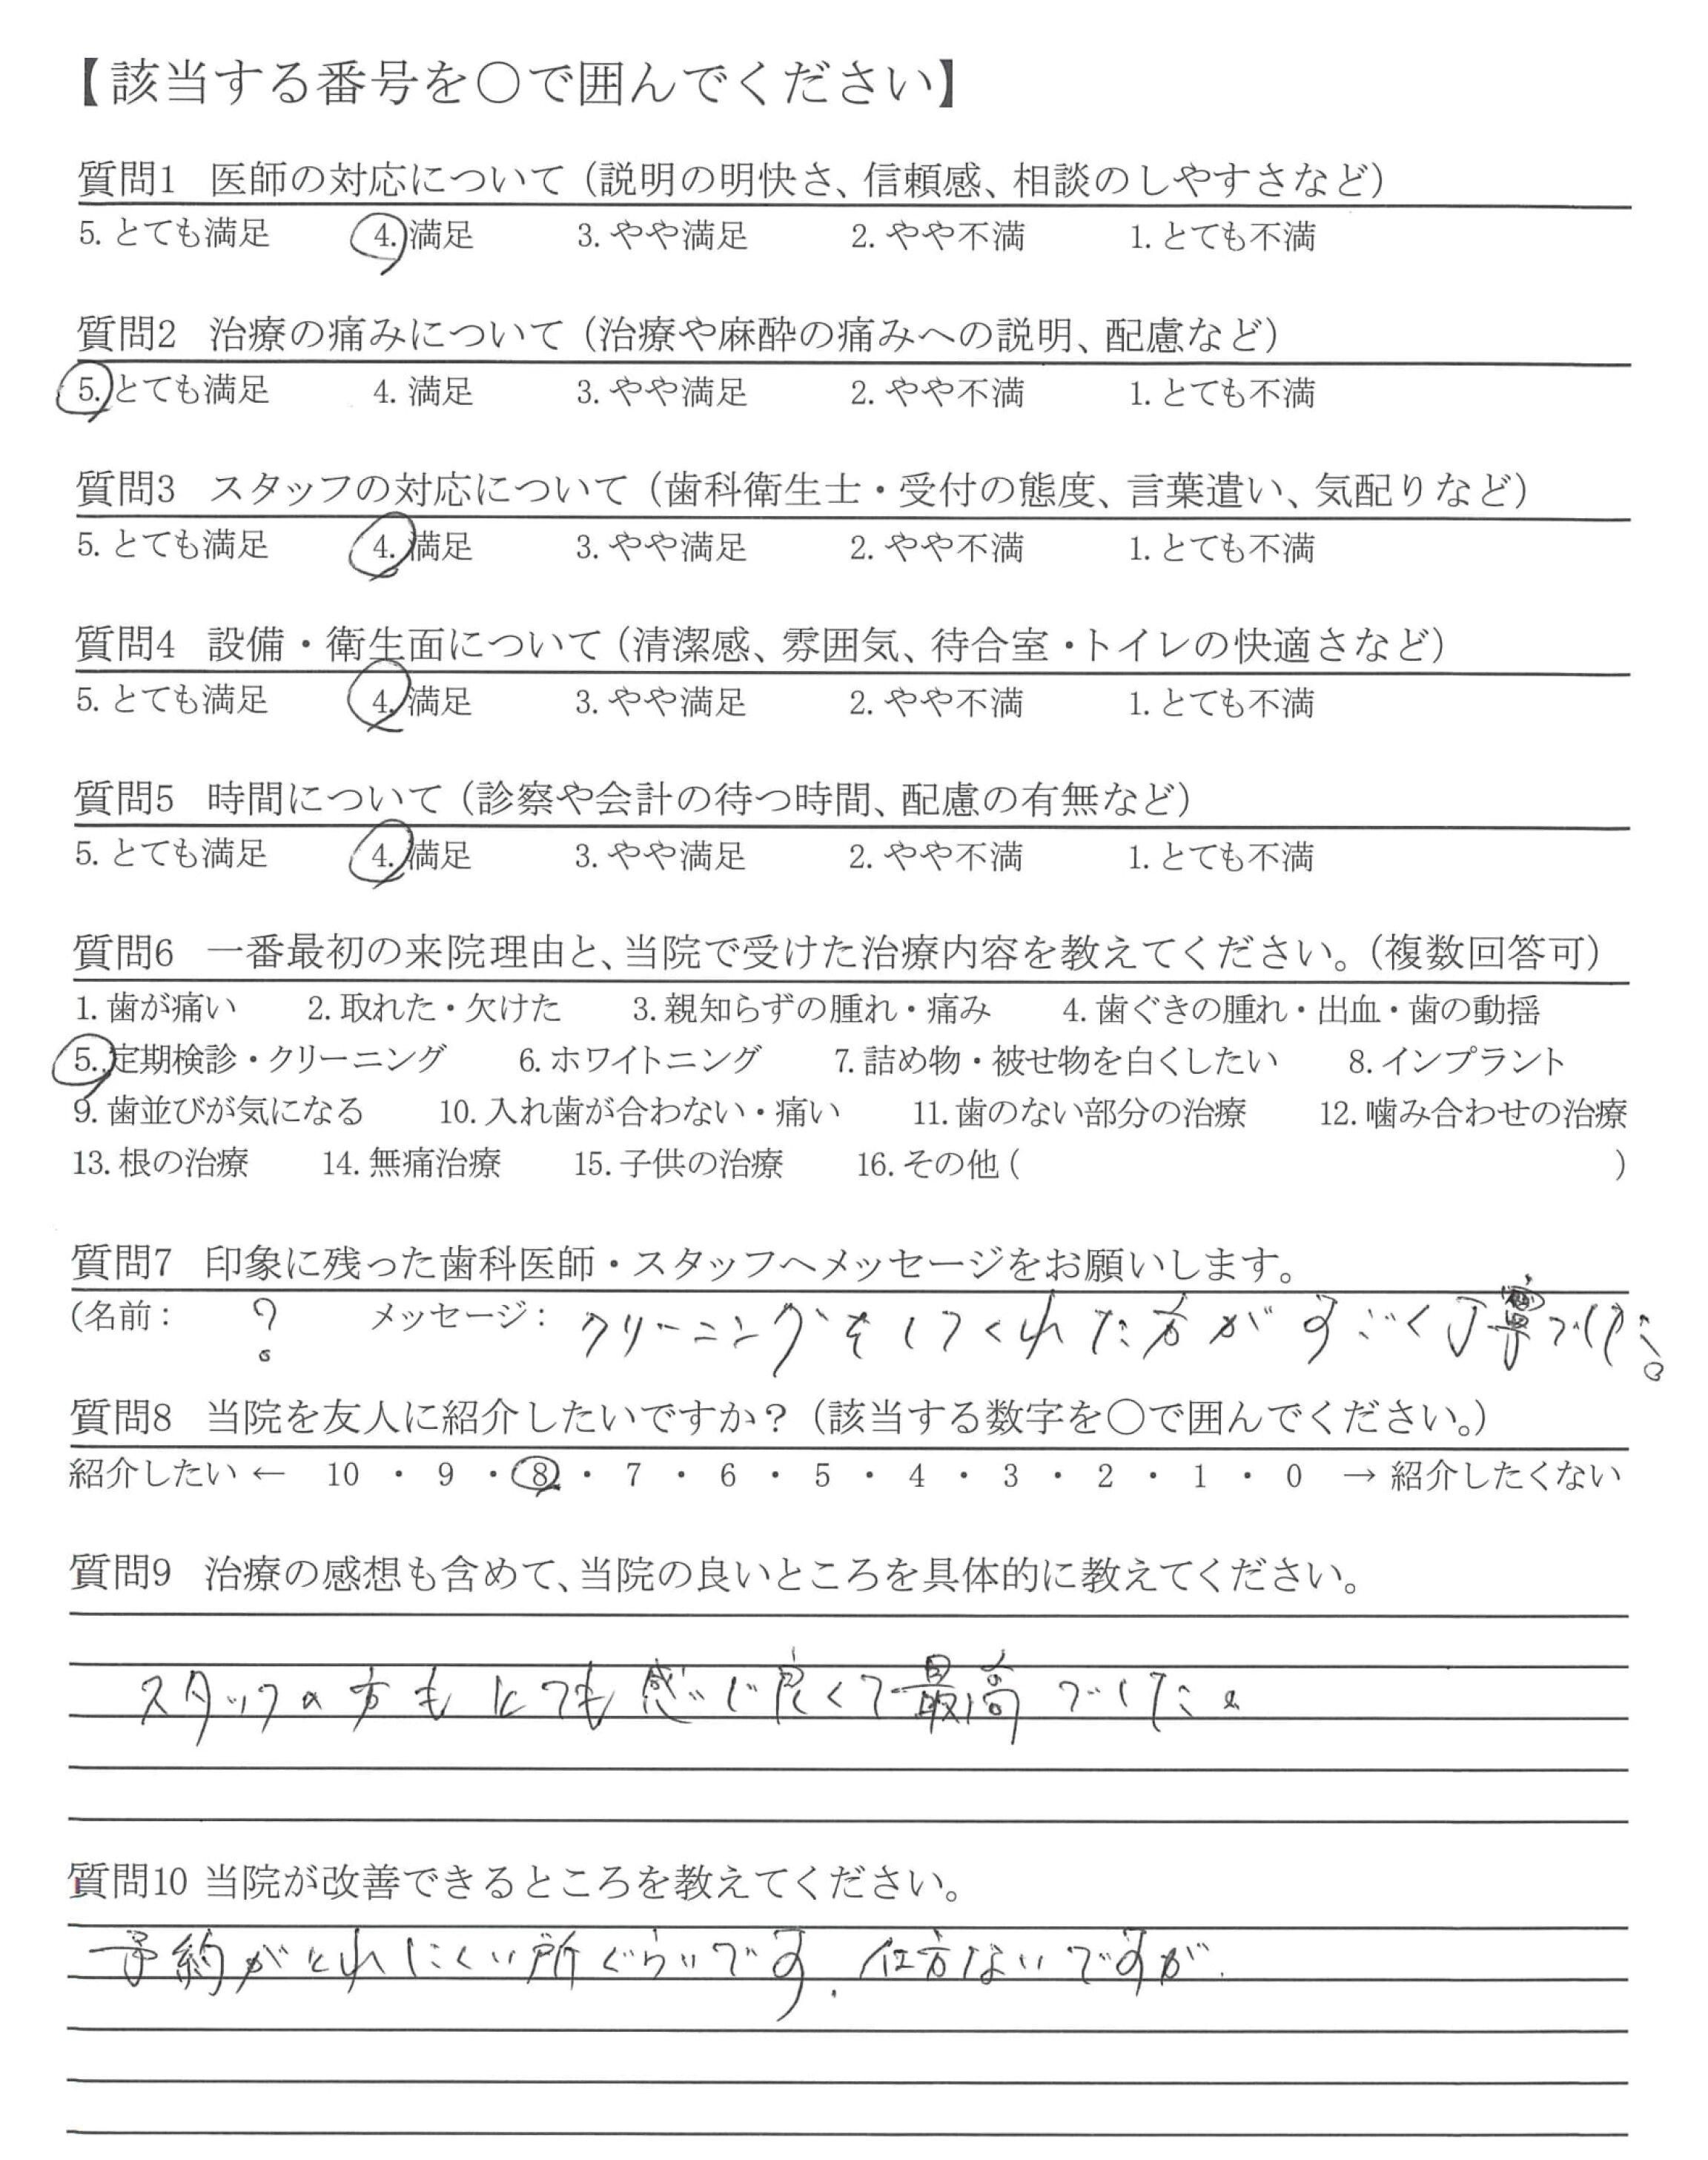 【該当する番号を〇で囲んでください】
質問1 医師の対応について（説明の明快さ、信頼感、相談のしやすさなど）
5. とても満足 4. 満足 3. やや満足 2. やや不満 1. とても不満
質問2 治療の痛みについて（治療や麻酔の痛みへの説明、配慮など）
5. とても満足 4. 満足 3. やや満足 2. やや不満 1. とても不満
質問3 スタッフの対応について（歯科衛生士・受付の態度、言葉遣い、気配りなど）
5. とても満足 4. 満足 3. やや満足 2. やや不満 1. とても不満
質問4 設備・衛生面について（清潔感、雰囲気、待合室・トイレの快適さなど）
5. とても満足 4. 満足 3. やや満足 2. やや不満 1. とても不満
質問5 時間について（診察や会計の待つ時間、配慮の有無など）
5. とても満足 4. 満足 3. やや満足 2. やや不満 1. とても不満
質問6 一番最初の来院理由と、当院で受けた治療内容を教えてください。（複数回答可）
1. 歯が痛い 2. 取れた・欠けた 3. 親知らずの腫れ・痛み 4. 歯ぐきの腫れ・出血・歯の動揺
5. 定期検診・クリーニング 6. ホワイトニング 7. 詰め物・被せ物を白くしたい 8. インプラント
9. 歯並びが気になる 10. 入れ歯が合わない・痛い 11. 歯のない部分の治療 12. 噛み合わせの治療
13. 根の治療 14. 無痛治療 15. 子供の治療 16. その他 ( )
質問7 印象に残った歯科医師・スタッフへメッセージをお願いします。
(名前： ？ メッセージ： クリーニングをしてくれた方がすごく丁寧でした。
質問8 当院を友人に紹介したいですか？（該当する数字を〇で囲んでください。）
紹介したい ← 10 ・ 9 ・ 8 ・ 7 ・ 6 ・ 5 ・ 4 ・ 3 ・ 2 ・ 1 ・ 0 → 紹介したくない
質問9 治療の感想も含めて、当院の良いところを具体的に教えてください。
スタッフの方もとても感じ良くて最高でした。
質問10 当院が改善できるところを教えてください。
予約がとれにくい所ぐらいです。仕方ないですが.